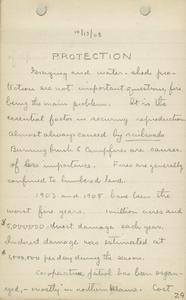 10/13/08
PROTECTION
Grazing and water-shed pro-
tection are not important questions, fire
being the main problem. It is the
essential factor in securing reproduction
Almost always caused by railroads
Burning brush & Campfires are causes
of less importance. Fires are generally
confined to timbered land.
1903 and 1908 have been the
worst fire years. million acres and
$5,000,000 direct damage each year.
Indirect damage was estimated at
$1,000,000 per day during the season.
Co-operative patrol has been organ-
ized, - mostly in northern Maine. Cost